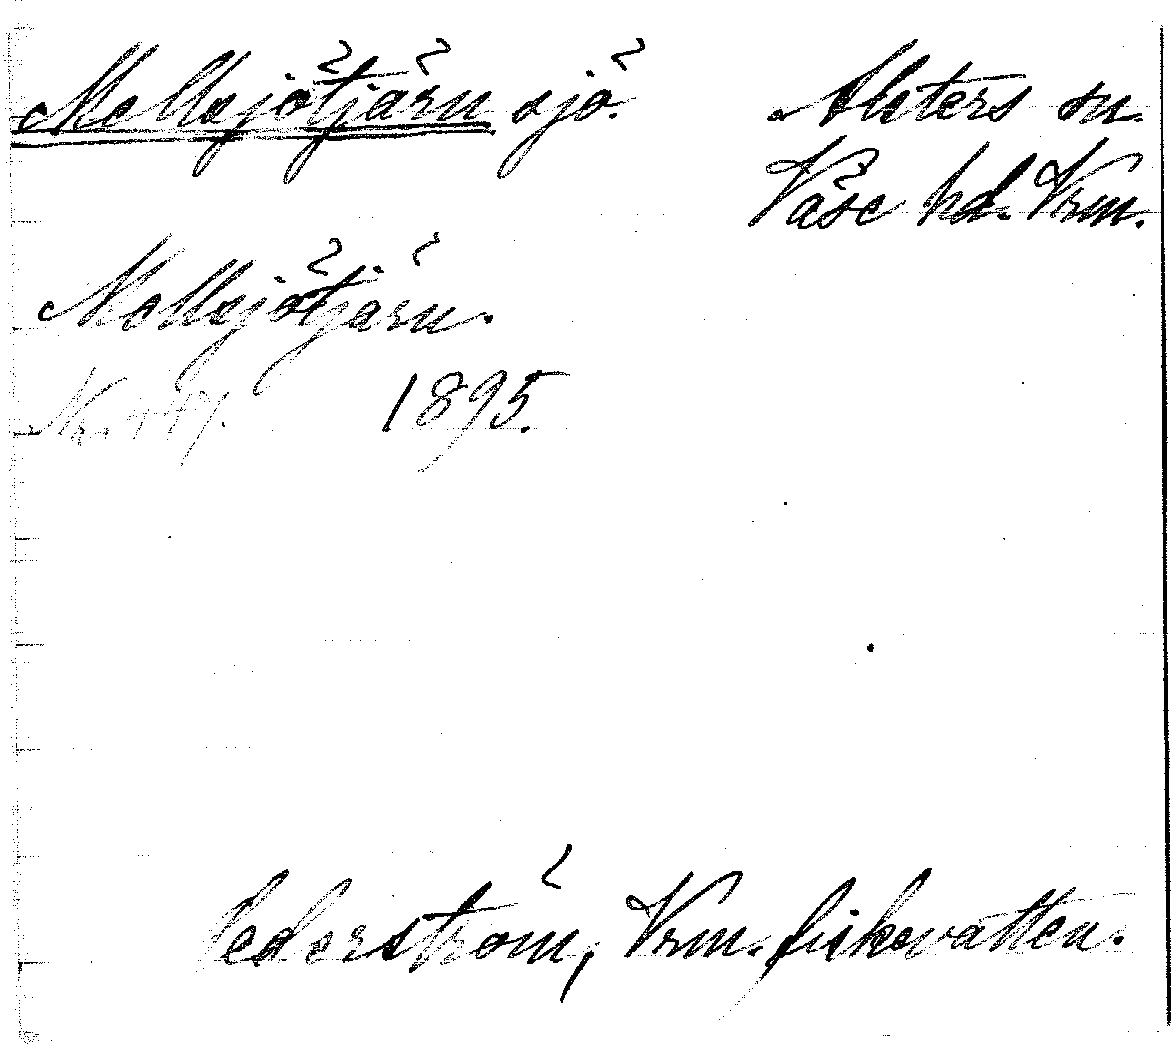 Mellsjötjärn sjö. Alsters sn
Väse hd. Vrm.
Mellsjötjärn.
Nr. 1895.
Cederström, Vrm. fiskevatten.